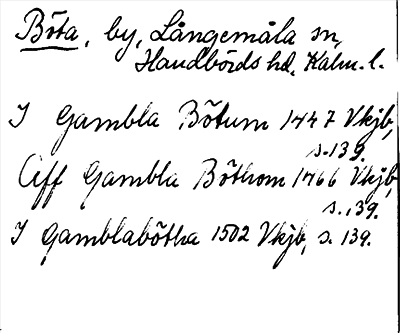 Böta, by, Långemåla sn,
Handbörds hd, Kalm. l.
I Gambla Bötum 1447 Vkjb,
s. 139.
Aff Gambla Böthom 1466 Vkjb,
s. 139.
I gamblabötha 1502 Vkjb, s. 139.